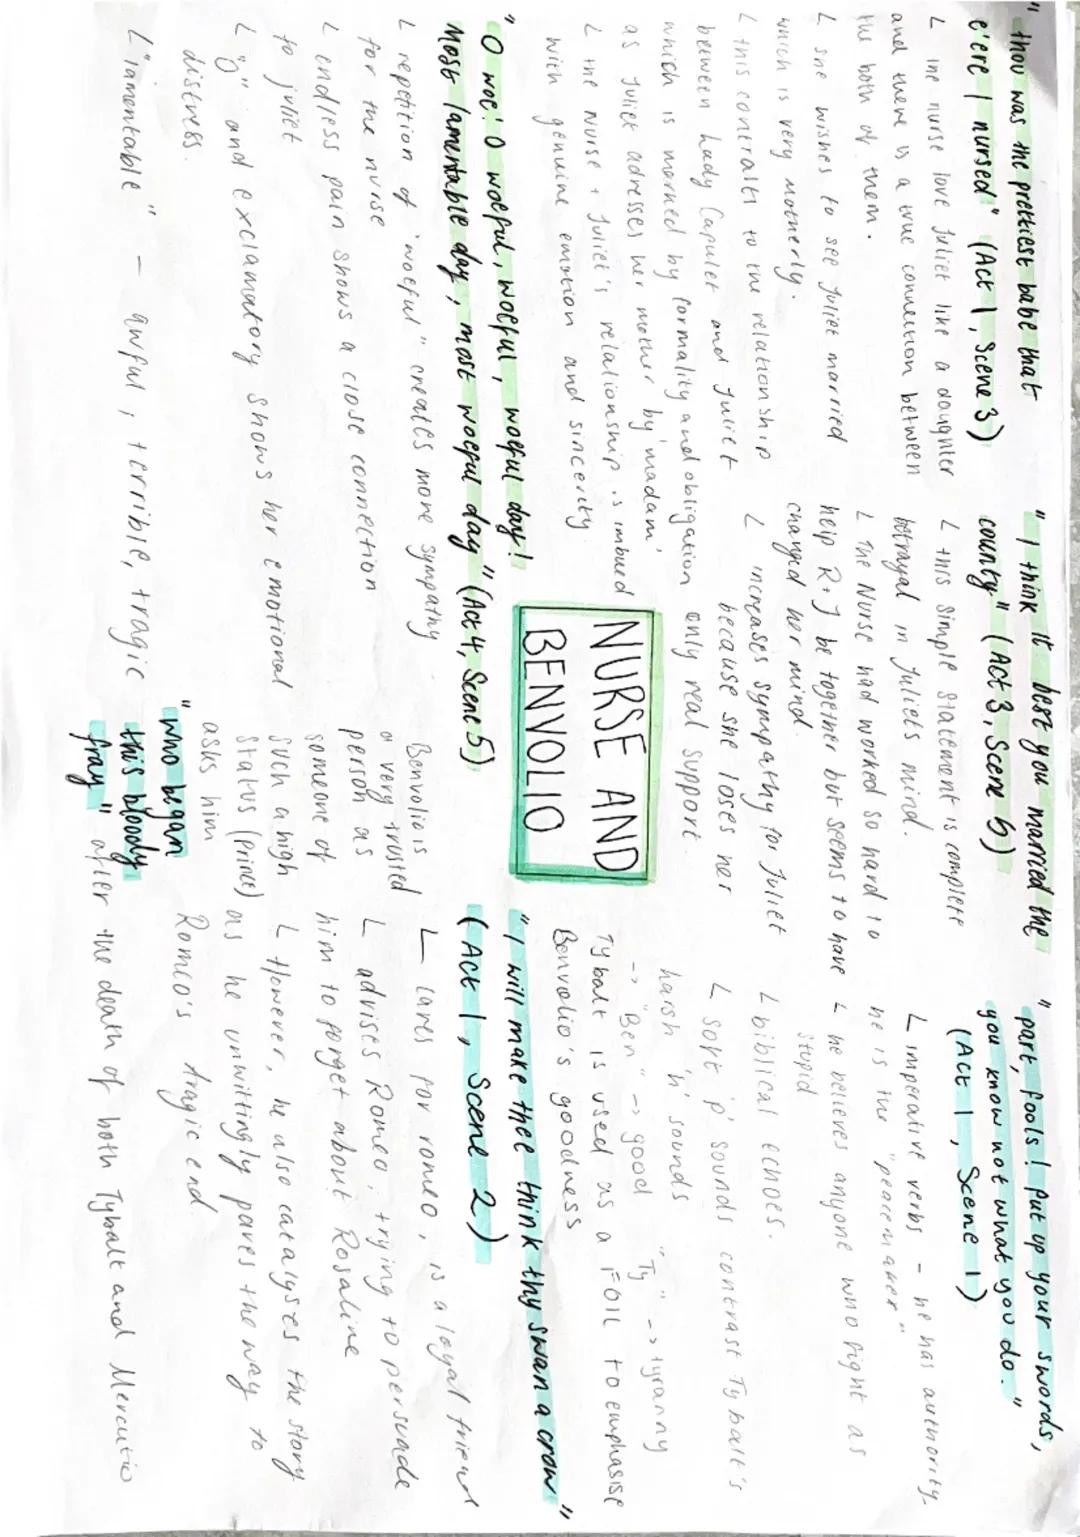 "thou was the prettiest babe that
e'ere I nursed" (Act 1, Scene 3)
L the nurse love Juliet like a daughter
and there is a true connection between
the both of them.
L she wishes to see Juliet married
which is very motherly.
L this contrasts to the relationship
between Lady Capulet and Juliet
which is marked by formality and obligation
as Juliet adresses her mother by 'madam'
L The Nurse + Juliet's relationship is imbued
with genuine emotion and sincerity
"I think it best you married the
county" (Act 3, Scene 5)
L this simple statement is complete
betrayal in Juliet's mind.
L The Nurse had worked so hard to
help R+J be together but seems to have
changed her mind.
L increases sympathy for Juliet
because she loses her
only real support
"part, fools! Put up your swords,
you know not what you do."
(Act 1, Scene 1)
L imperative verbs - he has authority.
he is the "peacemaker"
L he believes anyone who fight as
stupid
L biblical echoes.
L soft 'p' sounds contrast Tybalt's
harsh 'h' sounds
-> "Ben" -> good "Ty" -> tyranny
Tybalt is used as a Foil to emphasise
Benvolio's goodness
NURSE AND
BENVOLIO
"O woe! O woeful, woeful, woeful day!
Most lamentable day, most woeful day" (Act 4, Scene 5)
L repetition of 'woeful" creates more sympathy
for the nurse
L endless pain shows a close connection
to juliet
L "O" and exclamatory shows her emotional
distress.
L "lamentable" - awful, terrible, tragic
"I will make thee think thy swan a crow"
(Act 1, Scene 2)
L cares for romeo, is a loyal friend
L advises Romeo, trying to persuade
him to forget about Rosaline
L However, he also catalyses the story
as he unwittingly paves the way to
Romeo's tragic end.
Benvolio is
a very trusted
person as
someone of
such a high
status (prince)
asks him
"who began
this bloody
fray" after the death of both Tybalt and Mercutio